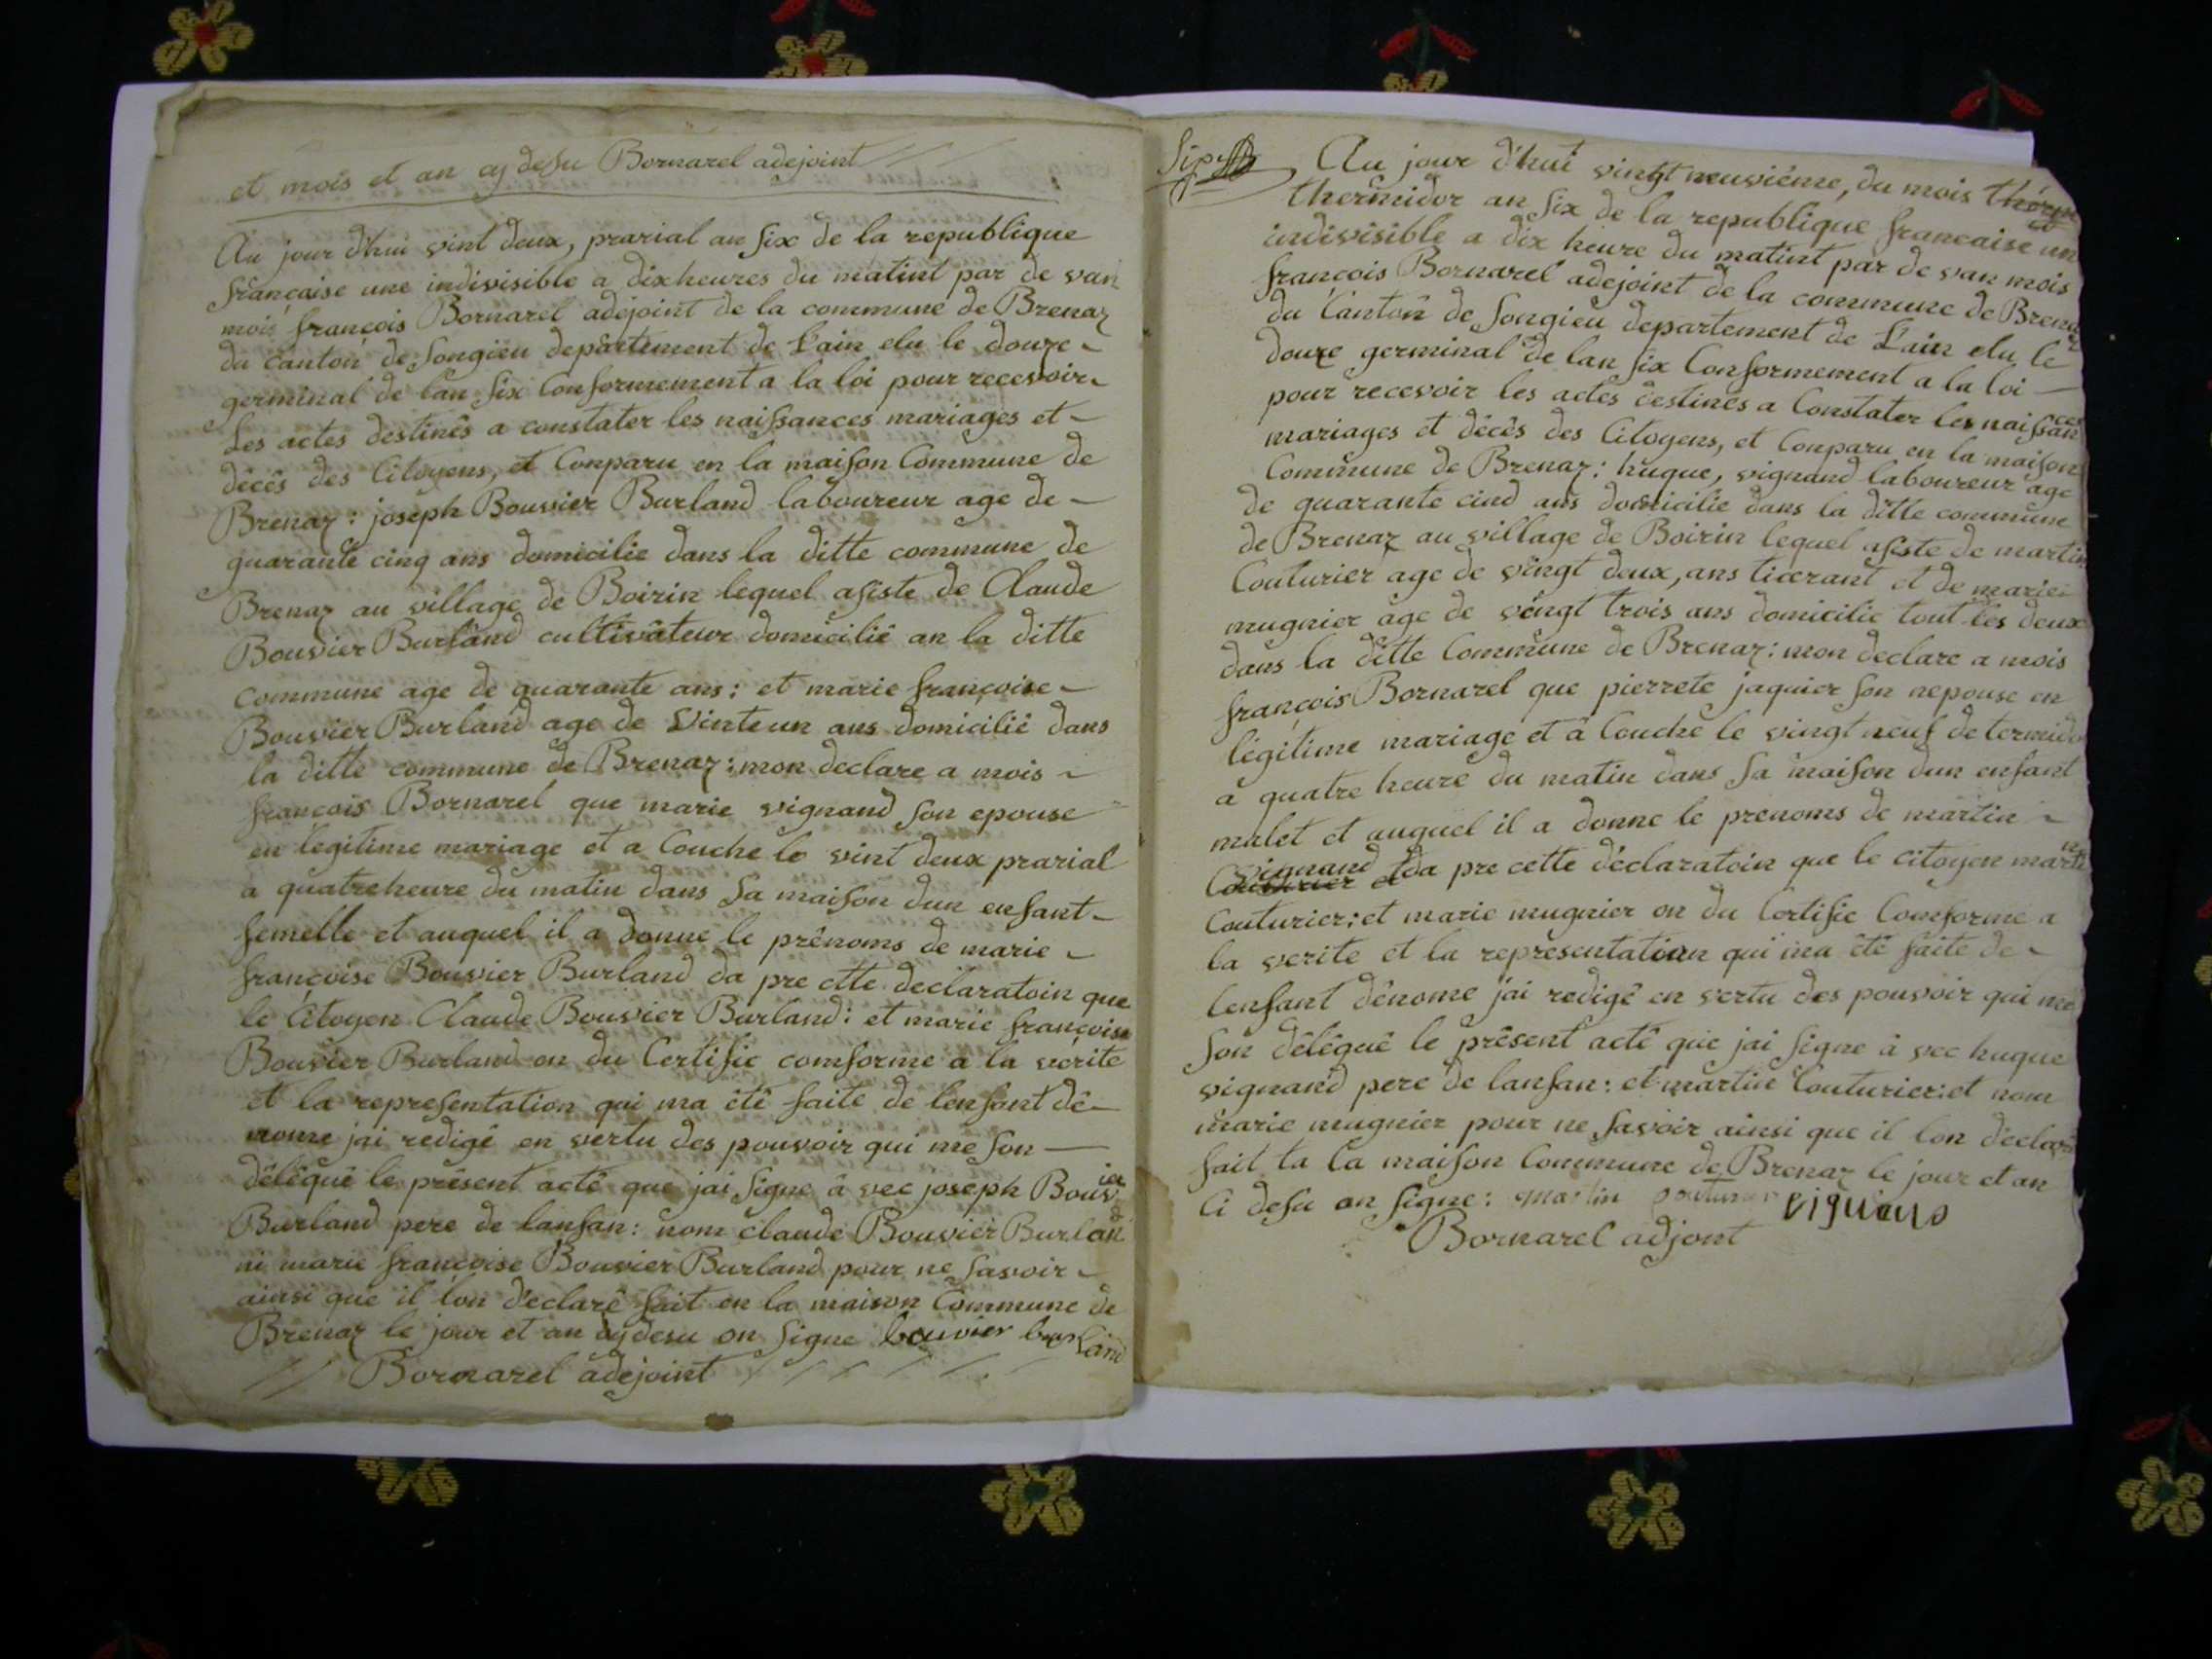 et mois et an cy desu Bornarel adejoint
Au jour d'hui vint deux, prarial an six de la republique
française une indivisible a dix heures du matint par de van
mois françois Bornarel adejoint de la commune de Brenaz
du canton de Songieu departement de L'ain elu le douze
germinal de l'an six Conformement a la loi pour recevoir
Les actes destinés a constater les naissances mariages et
décès des Citoyens, et Conparu en la maison Commune de
Brenaz : joseph Bouvier Burland laboureur age de
quarante cinq ans domicilie dans la ditte commune de
Brenaz au village de Boirin lequel asiste de Claude
Bouvier Burland cultivateur domicilié an la ditte
commune age de quarante ans : et marie françoise
Bouvier Burland age de Vinteun ans domicilié dans
la ditte commune de Brenaz : mon declare a mois
françois Bornarel que marie vignand son epouse
en legitime mariage et a Couche le vint deux prarial
a quatre heure du matin dans Sa maison dun enfant
femelle et auquel il a donne le prénoms de marie
françoise Bouvier Burland da pre ette declaratoin que
le Citoyen Claude Bouvier Burland : et marie françoise
Bouvier Burland on du Certific comforme a la verite
et la representation qui ma été faite de lenfant dé
nome jai redigé en vertu des pouvoir qui me son
délégué le présent acté que jai Signe à vec joseph Bouvier
Burland pere de lanfan : nom claude Bouvier Burland
ni marie françoise Bouvier Burland pour ne Savoir
ainsi que il lon declaré fait en la maison Commune de
Brenaz le jour et an cy desu on Signe bouvier burland
Bornarel adejoint
Au jour d'hui vingt neuviéme, du mois
thermidor an six de la republique francaise un
indivisible a dix heure du matint par de van mois
françois Bornarel adejoint de la commune de Brenaz
du Canton de Songieu departement de L'ain elu le
douze germinal de lan six Conformement a la loi
pour recevoir les actes destinés a Constater les naissances
mariages et décés des Citoyens, et Conparu en la maison
Commune de Brenaz : hugue, vignand laboureur age
de quarante cind ans domicilie dans la ditte commune
de Brenaz au village de Boirin lequel asiste de martin
Couturier age de vingt deux, ans ticerant et de marie
mugnier age de vingt trois ans domicilie tout les deux
dans la ditte Commune de Brenaz : mon declare a mois
françois Bornarel que pierrete jaquier son nepouse en
légitime mariage et a Couché le vingt neuf de termido
a quatre heure du matin dans Sa maison dun enfant
malet et auquel il a donne le prenoms de martin
vignand
Couturier et da pre cette déclaratoin que le citoyen martin
Couturier : et marie mugnier on du Certific Comforme a
la verite et la representation qui ma été faite de
lenfant dénome jai redigé en vertu des pouvoir qui me
Son délégué le présent acté que jai Signe à vec hugue
vignand pere de lanfan : et martin Couturier : et nom
marie mugnier pour ne Savoir ainsi que il lon déclaré
fait ta la maison Commune de Brenaz le jour et an
Ci desu on Signe : martin couturier vignand
Bornarel adjont